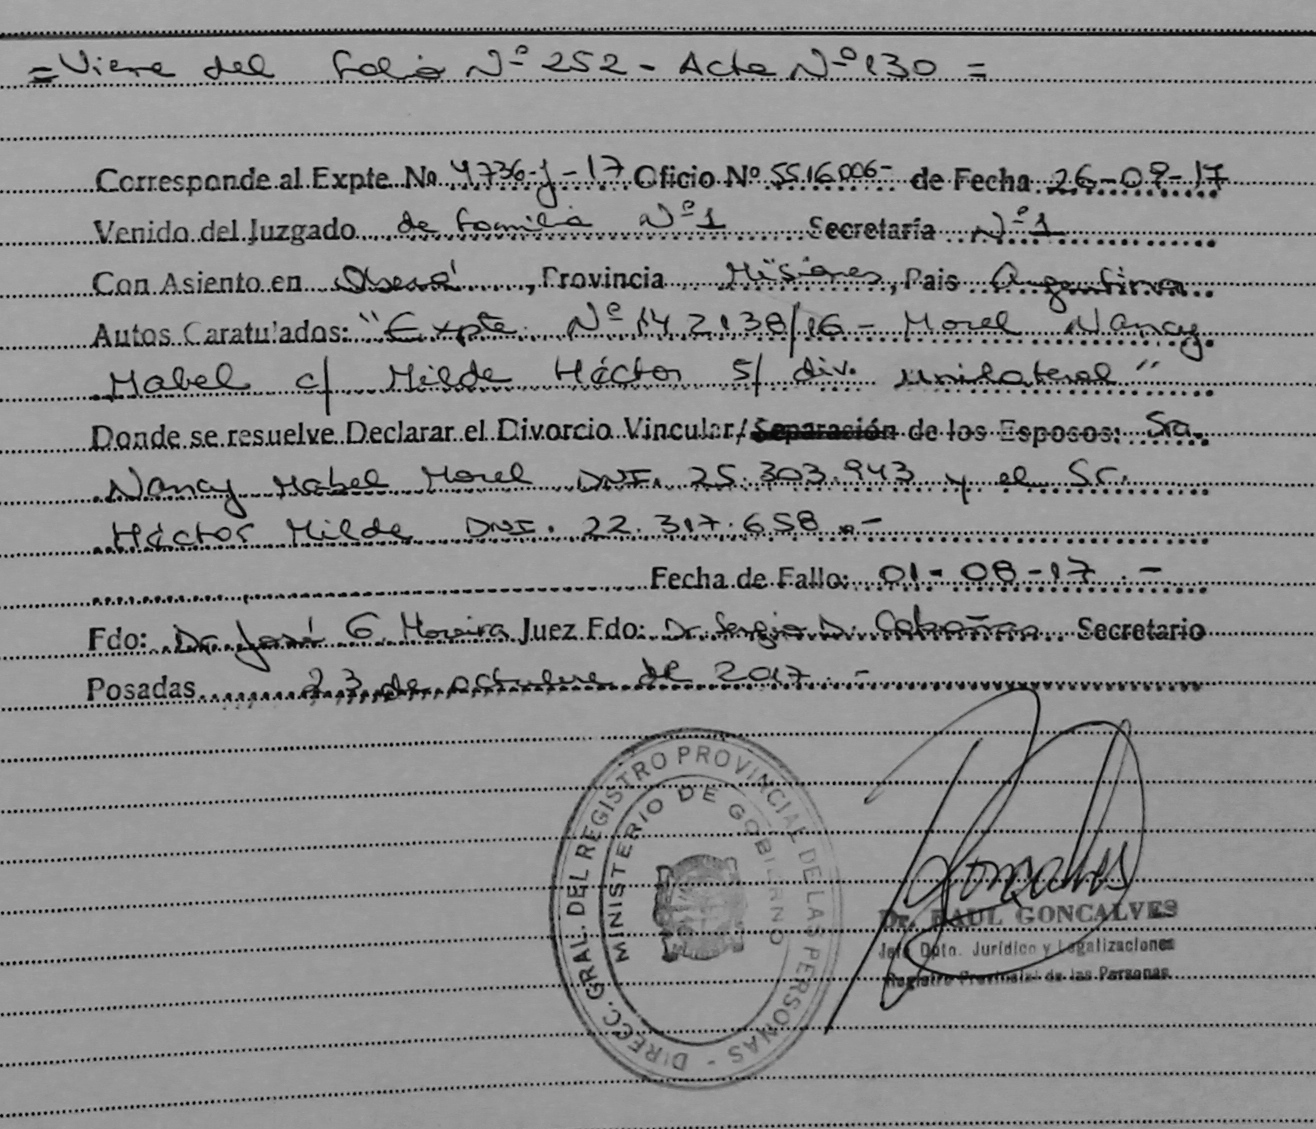 =Viene del folio Nº 252 - Acta Nº 130 =
Corresponde al Expte. No 4736-J-17 Oficio Nº 5516006- de Fecha 26-09-17
Venido del Juzgado de familia Nº 1 Secretaría Nº 1
Con Asiento en Oberá, Provincia Misiones, Pais Argentina.
Autos Caratulados: "Expte. Nº 142138/16 - Morel Nancy
Mabel c/ Milde Héctor s/ div. unilateral"
Donde se resuelve Declarar el Divorcio Vincular/Separación de los Esposos: Sra.
Nancy Mabel Morel DNI. 25.303.943 y el Sr.
Héctor Milde DNI. 22.317.658.-
Fecha de Fallo: 01-08-17.-
Fdo: Dr. José G. Moreira Juez Fdo: Dr. Sergio D. Cabañas Secretario
Posadas 23 de octubre de 2017.-
DIRECC. GRAL. DEL REGISTRO PROVINCIAL DE LAS PERSONAS -
MINISTERIO DE GOBIERNO
Dr. RAUL GONCALVES
Jefe Dpto. Jurídico y Legalizaciones
Registro Provincial de las Personas